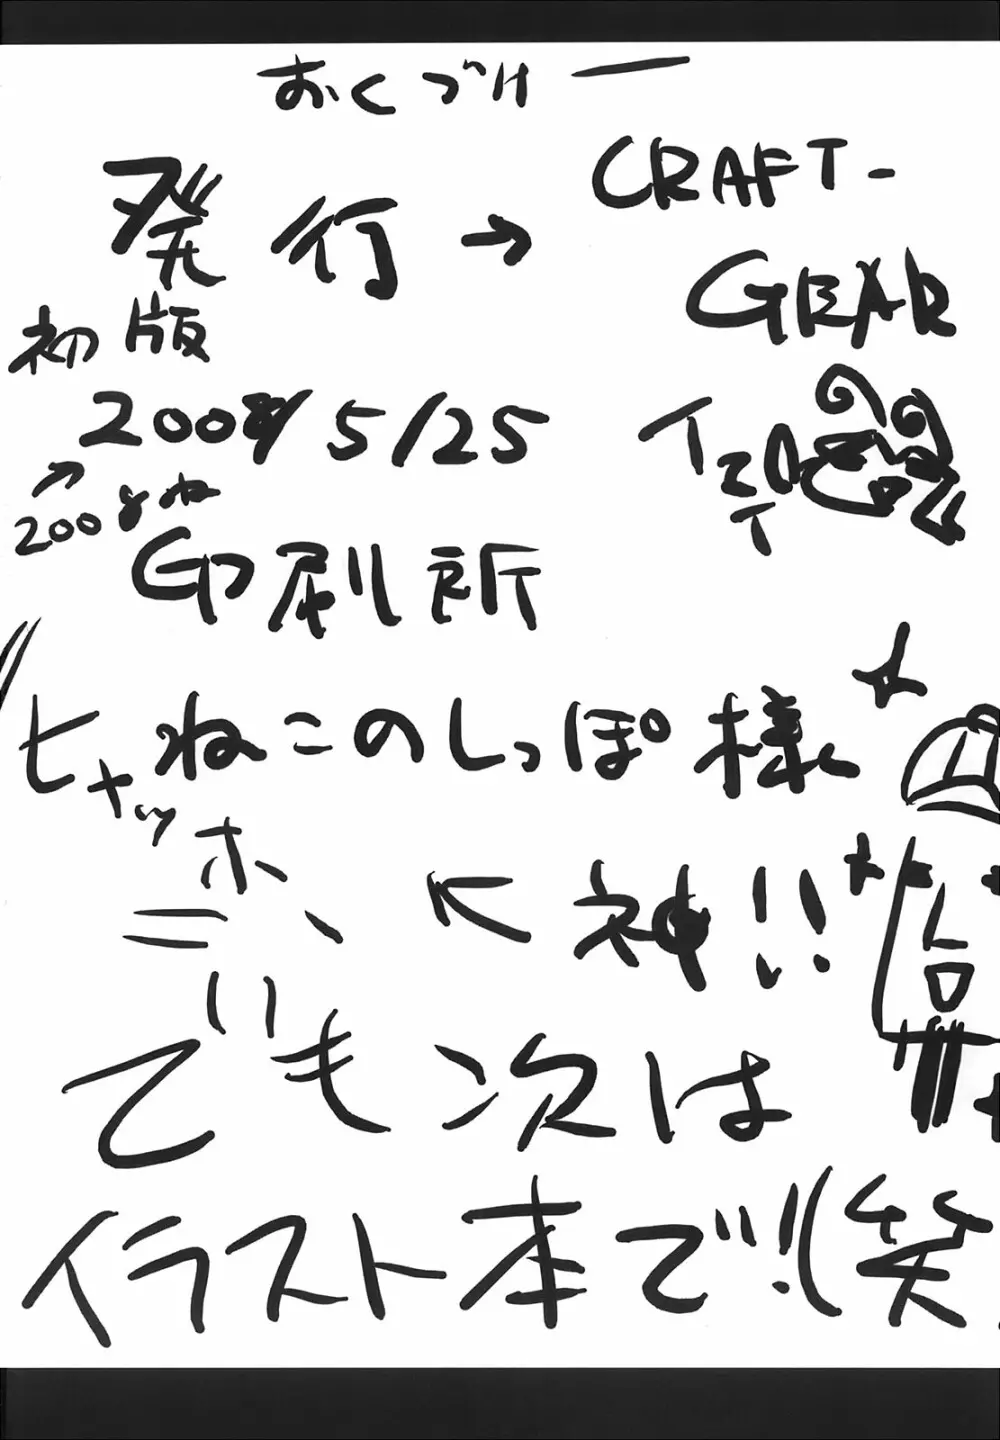 おくづけー
発行→ CRAFT-
GEAR
初版
2008/5/25
↗
2008ね
印刷所
ねこのしっぽ様
ヒャッホー
神!!
でも次は
イラスト本で!!(笑